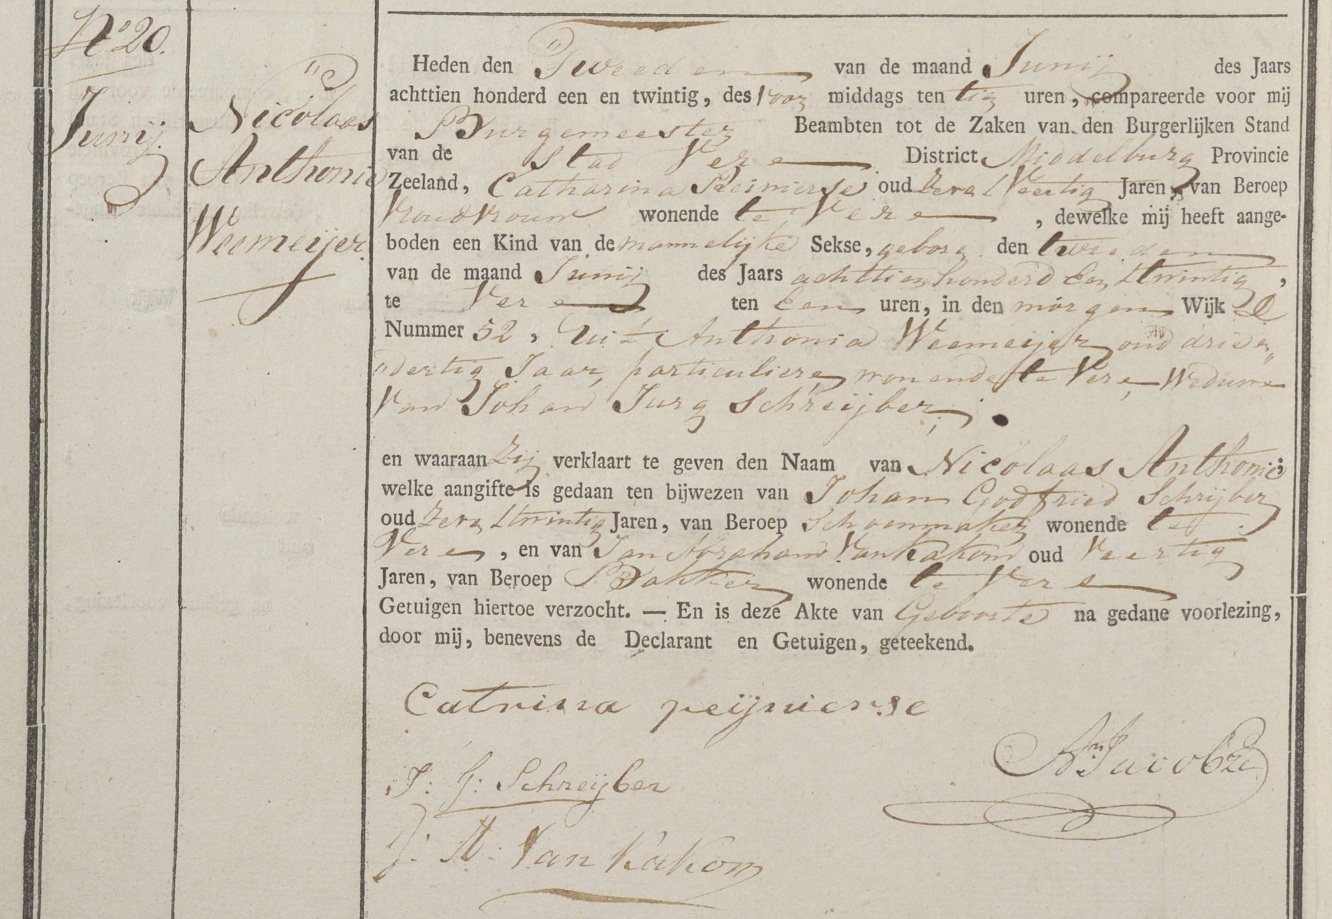 No 20.
Junij
Nicolaas
Anthonie
Weemeijer
Heden den Tweeden van de maand Junij des Jaars
achttien honderd een en twintig, des voor middags ten tig uren, compareerde voor mij
Burgemeester Beambten tot de Zaken van den Burgerlijken Stand
van de Stad Vere District Middelburg Provincie
Zeeland, Catharina Reinierse oud Zeven en Veertig Jaren, van Beroep
Vroedvrouw wonende te Vere, dewelke mij heeft aange-
boden een Kind van de mannelijke Sekse, geboren den tweeden
van de maand Junij des Jaars achttien honderd Een en twintig,
te Vere ten Een uren, in den morgen Wijk D
Nummer 52, uit Anthonia Weemeijer oud drie en
"dertig Jaar, particuliere, wonende te Vere, Weduwe
van Johan Jurg Schreijber;
en waaraan Zij verklaart te geven den Naam van Nicolaas Anthonie;
welke aangifte is gedaan ten bijwezen van Johan Godfried Schrijber
oud Zeven en twintig Jaren, van Beroep Schoenmaker wonende te
Vere, en van Jan Abraham Van Kakom oud Veertig
Jaren, van Beroep Bakker wonende te Vere
Getuigen hiertoe verzocht. — En is deze Akte van Geboorte na gedane voorlezing,
door mij, benevens de Declarant en Getuigen, geteekend.
Catrina peijnierse
J: G: Schreijber
An Jacobze
J: A: Van Kakom